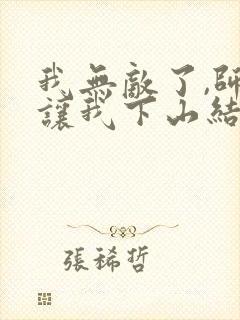 我無敵了,師
讓我下山結
張稀哲